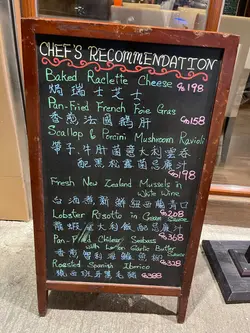 CHEF'S RECOMMENDATION
Baked Raclette Cheese $198
焗瑞士芝士
Pan-Fried French Foie Gras $158
香煎法國鵝肝
Scallop & Porcini Mushroom Ravioli
帶子牛肝菌意大利雲吞
配黑松露菌忌廉汁 $198
Fresh New Zealand Mussels in
White Wine
白酒煮新鮮紐西蘭青口 $208
Lobster Risotto in Cream Sauce
龍蝦意大利飯配忌廉汁 $368
Pan-Fried Chilean Seabass
with Lemon Garlic Butter Sauce
香煎智利鱸魚 $328
Roasted Spanish Iberico
燒西班牙黑毛豬 $388